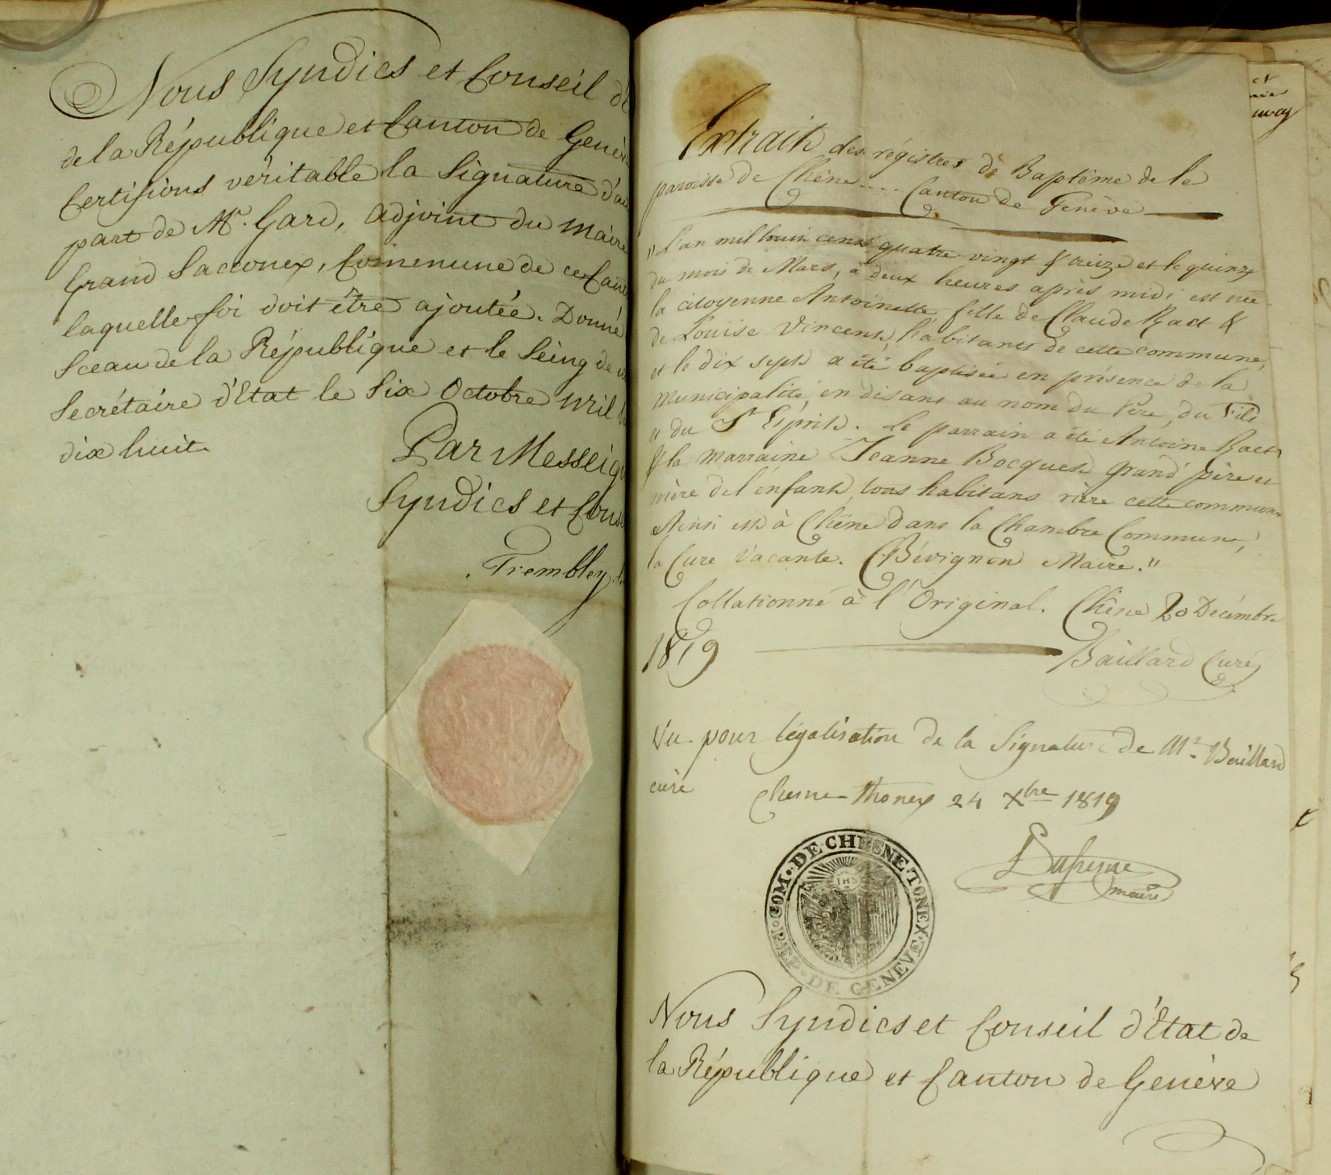 Nous Syndics et Conseil d
de la République et Canton de Genèv
Certifions véritable la Signature d'au
part de Mr. Gard, adjoint du Maire
Grand Sacconex, Commune de ce Can
laquelle foi doit être ajoutée. Donné
Sceau de la République et le Seing de
Secrétaire d'Etat le Six Octobre mil
dix huit.
Par Messeig
Syndics et Cons
Trembley
Extrait des régistres de Baptême de la
paroisse de Chêne.... Canton de Genève
"L'an mil cens quatre vingt & treize et le quinze
du mois de Mars, à deux heures après midi est née
la citoyenne Antoinette fille de Claude &
de Louise Vincent, habitants de cette commune,
et le dix sept a été baptisée en présence de la
Municipalité en disant au nom du Père, du Fils
& du St Esprit. Le parrain a été Antoine
& la marraine Jeanne Bocquet grand père et
mère de l'enfant, tous habitans rière cette commune
Ainsi est à Chêne dans la Chambre Commune,
la Cure vacante. Chévignon Maire."
Collationné à l'Original. Chêne 20 Décembre
1819 Baillard Curé
Vu pour légalisation de la Signature de Mr. Baillard
curé Chesne-Thonex 24 Xbre 1819
Dufresne
maire
COM. DE CHESNE-TONEX. REP. DE GENEVE.
IHS
Nous Syndics et Conseil d'Etat de
la République et Canton de Genève